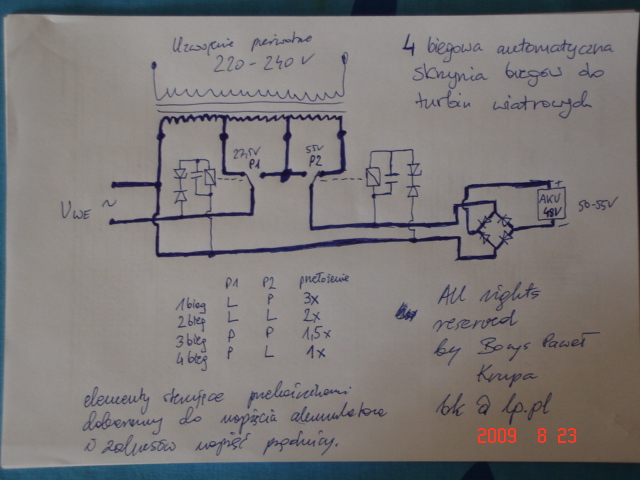 Uzwojenie pierwotne
220-240V
4 biegowa automatyczna
skrzynia biegów do
turbin wiatrowych
27,5V
P1
55V
P2
UWE ~
+
AKU
48V
-
50-55V
P1 P2 przełożenie
1 bieg L P 3x
2 bieg L L 2x
3 bieg P P 1,5x
4 bieg P L 1x
All rights
reserved
by Borys Paweł
Krupa
bk @ lp.pl
elementy sterujące przekaźnikami
dobieramy do napięcia akumulatora
i zakresów napięć prądnicy.
2009 8 23